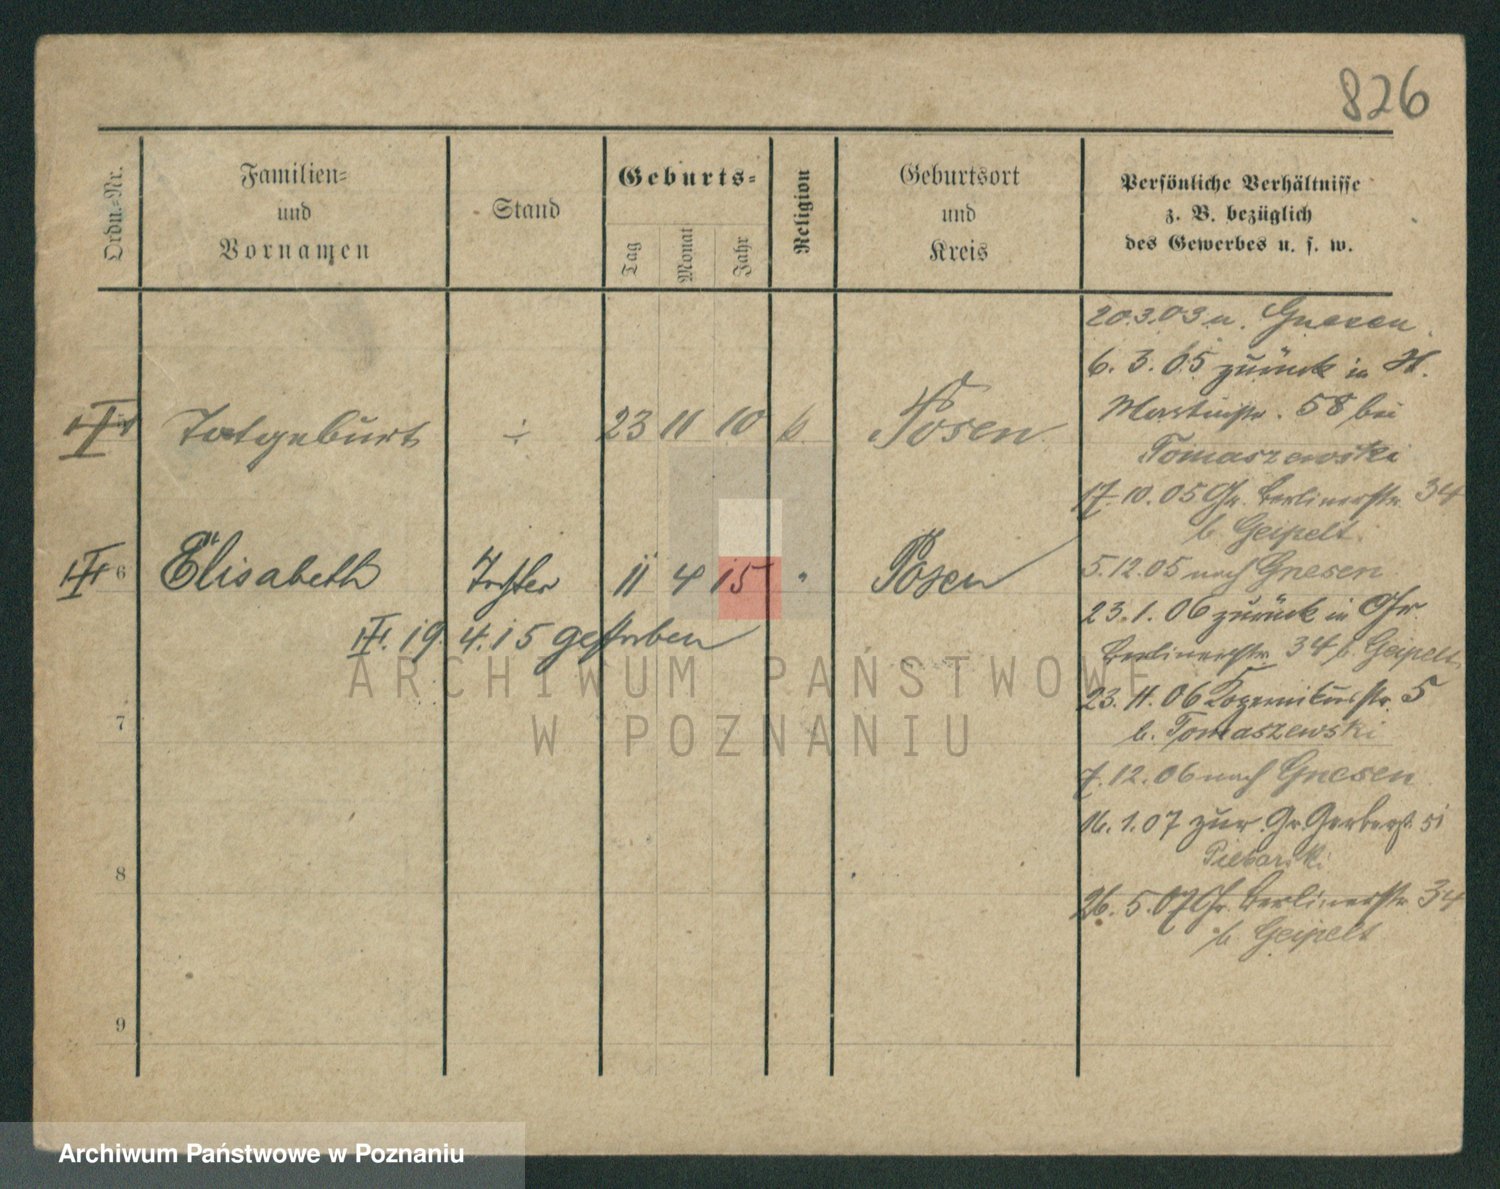 826
Ordn.-Nr.
Familien-
und
Vornamen
Stand
Geburts-
Tag
Monat
Jahr
Religion
Geburtsort
und
Kreis
Persönliche Verhältnisse
z. B. bezüglich
des Gewerbes u. s. w.
Totgeburt ÷ 23 11 10 k. Posen
6 Elisabeth Tochter 11 4 15 " Posen
19. 4. 15 gestorben
7
8
9
20.3.03 n. Gnesen
6. 3. 05 zurück in St.
Martinstr. 58 bei
Tomaszewski
17. 10. 05 Gr. Berlinerstr. 34
b. Geipelt
5.12.05 nach Gnesen
23. 1. 06 zurück in Gr.
Berlinerstr. 34 b. Geipelt
23. 11. 06 Kopernikusstr. 5
b. Tomaszewski
7. 12. 06 nach Gnesen
16. 1. 07 zur. Gr. Gerberst. 51
26. 5. 07 Gr. Berlinerstr. 34
b. Geipelt
ARCHIWUM PAŃSTWOWE
W POZNANIU
Archiwum Państwowe w Poznaniu